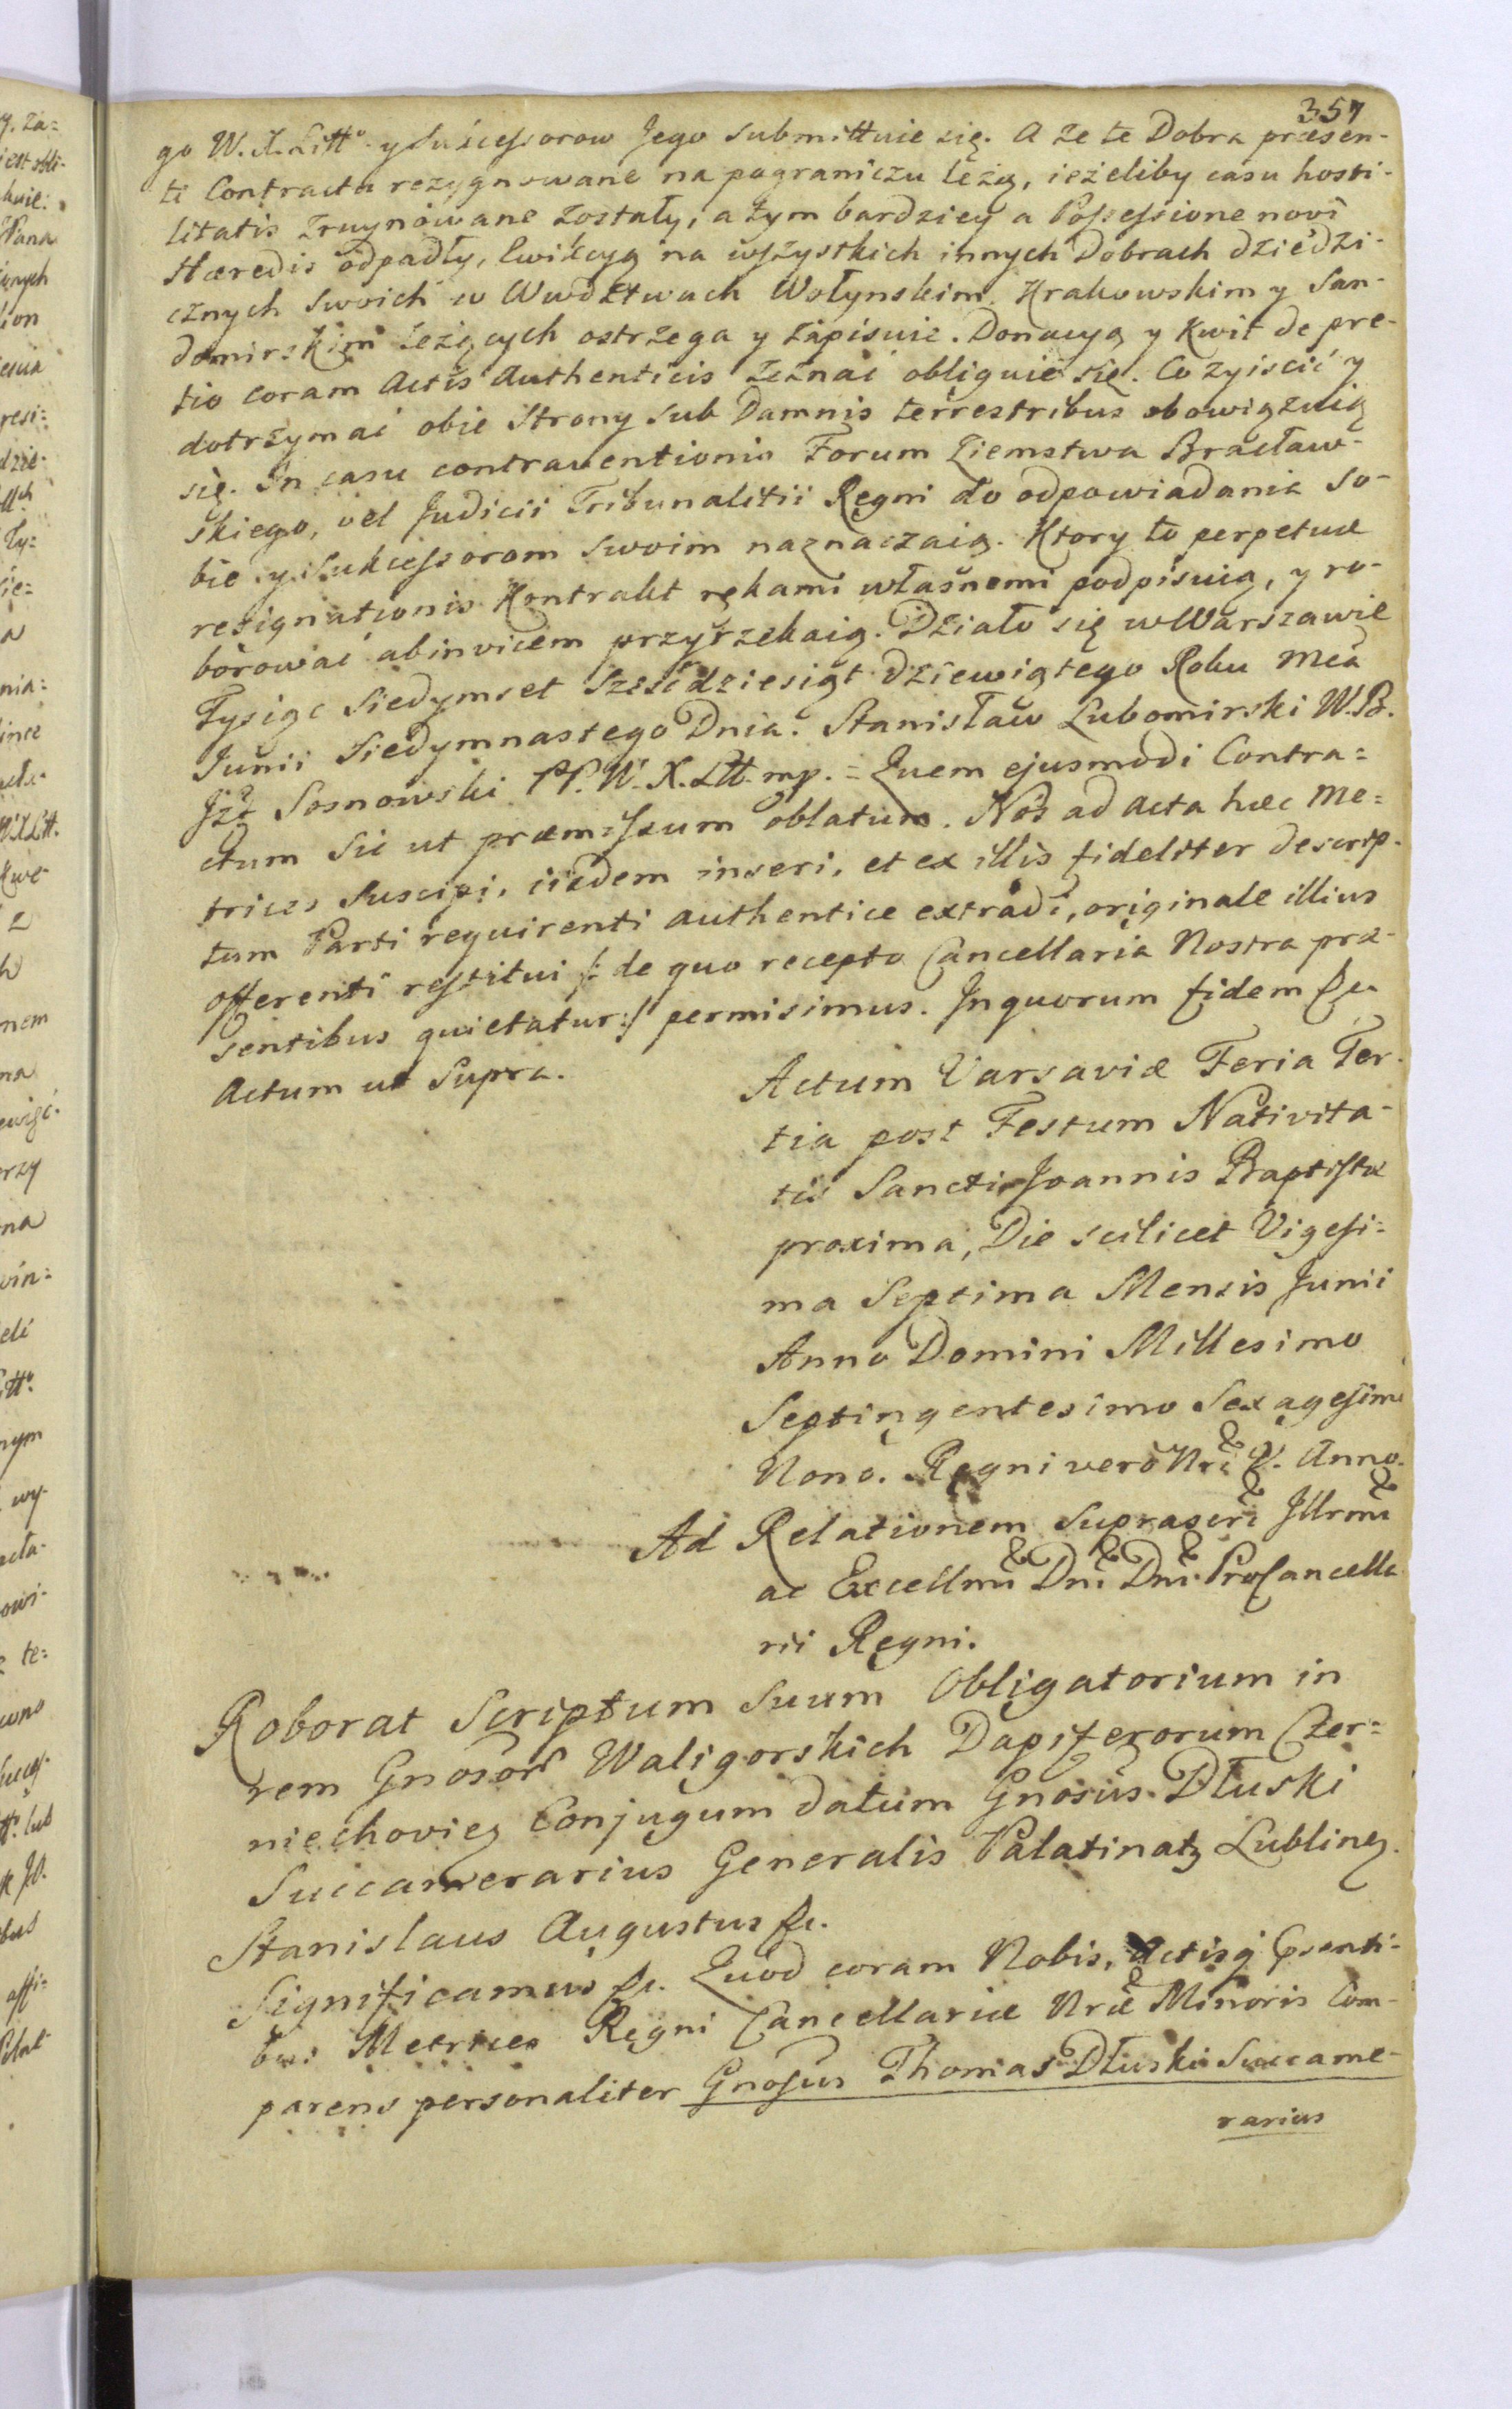 357
go W. X. Litt° y Sukcessorow Jego submittuie się. A że te Dobra præsen-
te Contractu rezygnowane na pograniczu leżą, ieżeliby casu hosti-
litatis zruynowane zostały, a tym bardziey a Possessione novi
Hæredis odpadły, Ewikcyą na wszystkich innych Dobrach dziedzi-
cznych swoich w Wwdztwach Wołynskim, Krakowskim y San-
domirskim leżących ostrzega y zapisuie. Donacyą y Kwit de pre-
tio coram Actis Authenticis zeznać obliguie się. Co ziyscić y
dotrzymać obie Strony sub Damnis terrestribus obowiązuią
się. In casu contraventionis Forum Ziemstwa Bracław-
skiego, vel Judicii Tribunalitii Regni do odpowiadania so-
bie y Sukcessorom swoim naznaczaią. Ktory to perpetuæ
resignationis Kontrakt rękami własnemi podpisuią, y ro-
borować abinvicem przyrzekaią. Działo się w Warszawie
Tysiąc Siedymset Szescdziesiąt Dziewiątego Roku Mca
Junii Siedymnastego Dnia. Stanisław Lubomirski W. B.
Jzt Sosnowski PP. W. X. Litt. mp. = Quem ejusmodi Contra=
ctum sic ut præmissum oblatum. Nos ad Acta hæc Me=
trices suscipi, iisdem inseri, et ex illis fideliter descrip-
tum Parti requirenti authentice extradi, originale illius
offerenti restitui /: de quo recepto Cancellaria Nostra præ-
sentibus quietatur :/ permisimus. In quorum fidem &c.
Actum ut Supra.
Actum Varsaviæ Feria Ter-
tia post Festum Nativita-
tis Sancti Joannis Baptistæ
proxima, Die scilicet Vigesi=
ma Septima Mensis Junii
Anno Domini Millesimo
Septingentesimo Sexagesimo
Nono. Regni vero Nri V. Anno.
Ad Relationem Suprascri Illrmi
ac Excellmi Dni Dni ProCancella
rii Regni.
Roborat Scriptum Suum Obligatorium in
rem Gnosor Waligorskich Dapiferorum Czer=
niechoviez Conjugum datum Gnosus Dłuski
Succamerarius Generalis Palatinatz Lublinez.
Stanislaus Augustus &c.
Significamus &c. Quod coram Nobis, Actisq Psenti-
bus Metrices Regni Cancellariæ Nræ Minoris Com-
parens personaliter Gnosus Thomas Dłuski Succame-
rarius